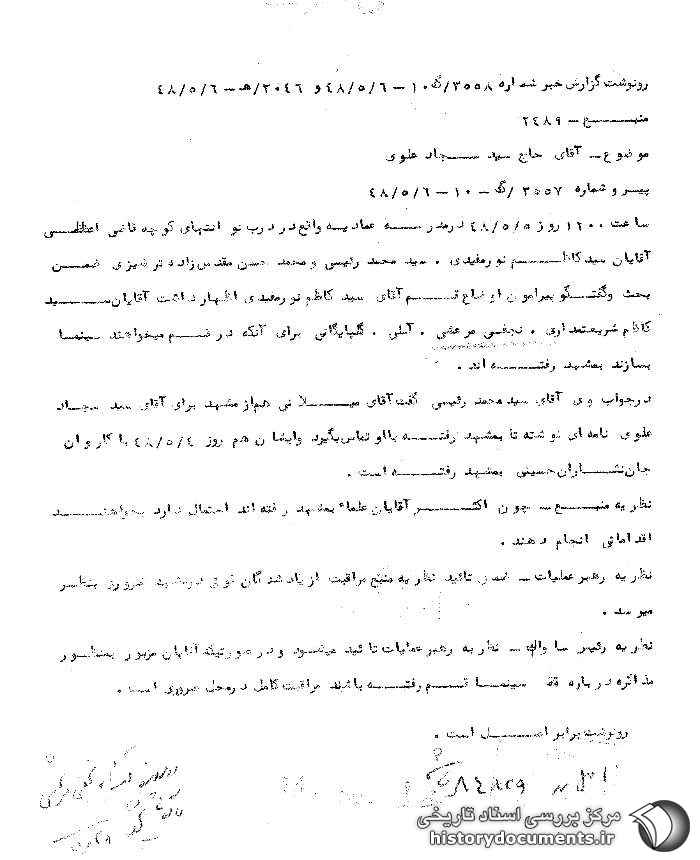 رونوشت گزارش خبر شماره ۳۵۵۸/گ ۱۰ – ۴۸/۵/۶ و ۲۰۴۶/هـ – ۴۸/۵/۶
منبع – ۲۴۸۹
موضوع – آقای حاج سید سجاد علوی
پیرو شماره ۳۵۵۷/گ – ۱۰ – ۴۸/۵/۶
ساعت ۱۲۰۰ روز ۴۸/۵/۵ درمدرسه عمادیه واقع در درب نو انتهای کوچه قاضی اعظمی
آقایان سید کاظم نورمفیدی . سید محمد رئیسی و محمد حسن مقدس زاده تر شیزی ضمن
بحث وگفتگو پیرامون اوضاع قم آقای سید کاظم نورمفیدی اظهار داشت آقایان سید
کاظم شریعتمداری . نجفی مرعشی . آملی . گلپایگانی برای آنکه در قم میخواهند سینما
بسازند بمشهد رفته اند .
درجواب وی آقای سید محمد رئیسی گفت آقای میلانی هم از مشهد برای آقای سید سجاد
علوی نامه ای نوشته تا بمشهد رفته بااو تماس بگیرد وایشان هم روز ۴۸/۵/۴ با کاروان
جان نثاران حسینی بمشهد رفته است .
نظریه منبع – چون اکثر آقایان علماء بمشهد رفته اند احتمال دارد بخواهند
اقداماتی انجام دهند .
نظریه رهبر عملیات – ضمن تائید نظریه منبع مراقبت از یاد شدگان فوق درمشهد ضروری بنظر
میرسد .
نظریه رئیس ساواک – نظریه رهبر عملیات تائید میشود ودر صورتیکه آقایان مزبور بمنظور
مذاکره درباره سینما قم رفته باشند مراقبت کامل درمحل ضروری است .
رونوشت برابر اصل است .
۸۴۸۲۹
مرکز بررسی اسناد تاریخی
historydocuments.ir